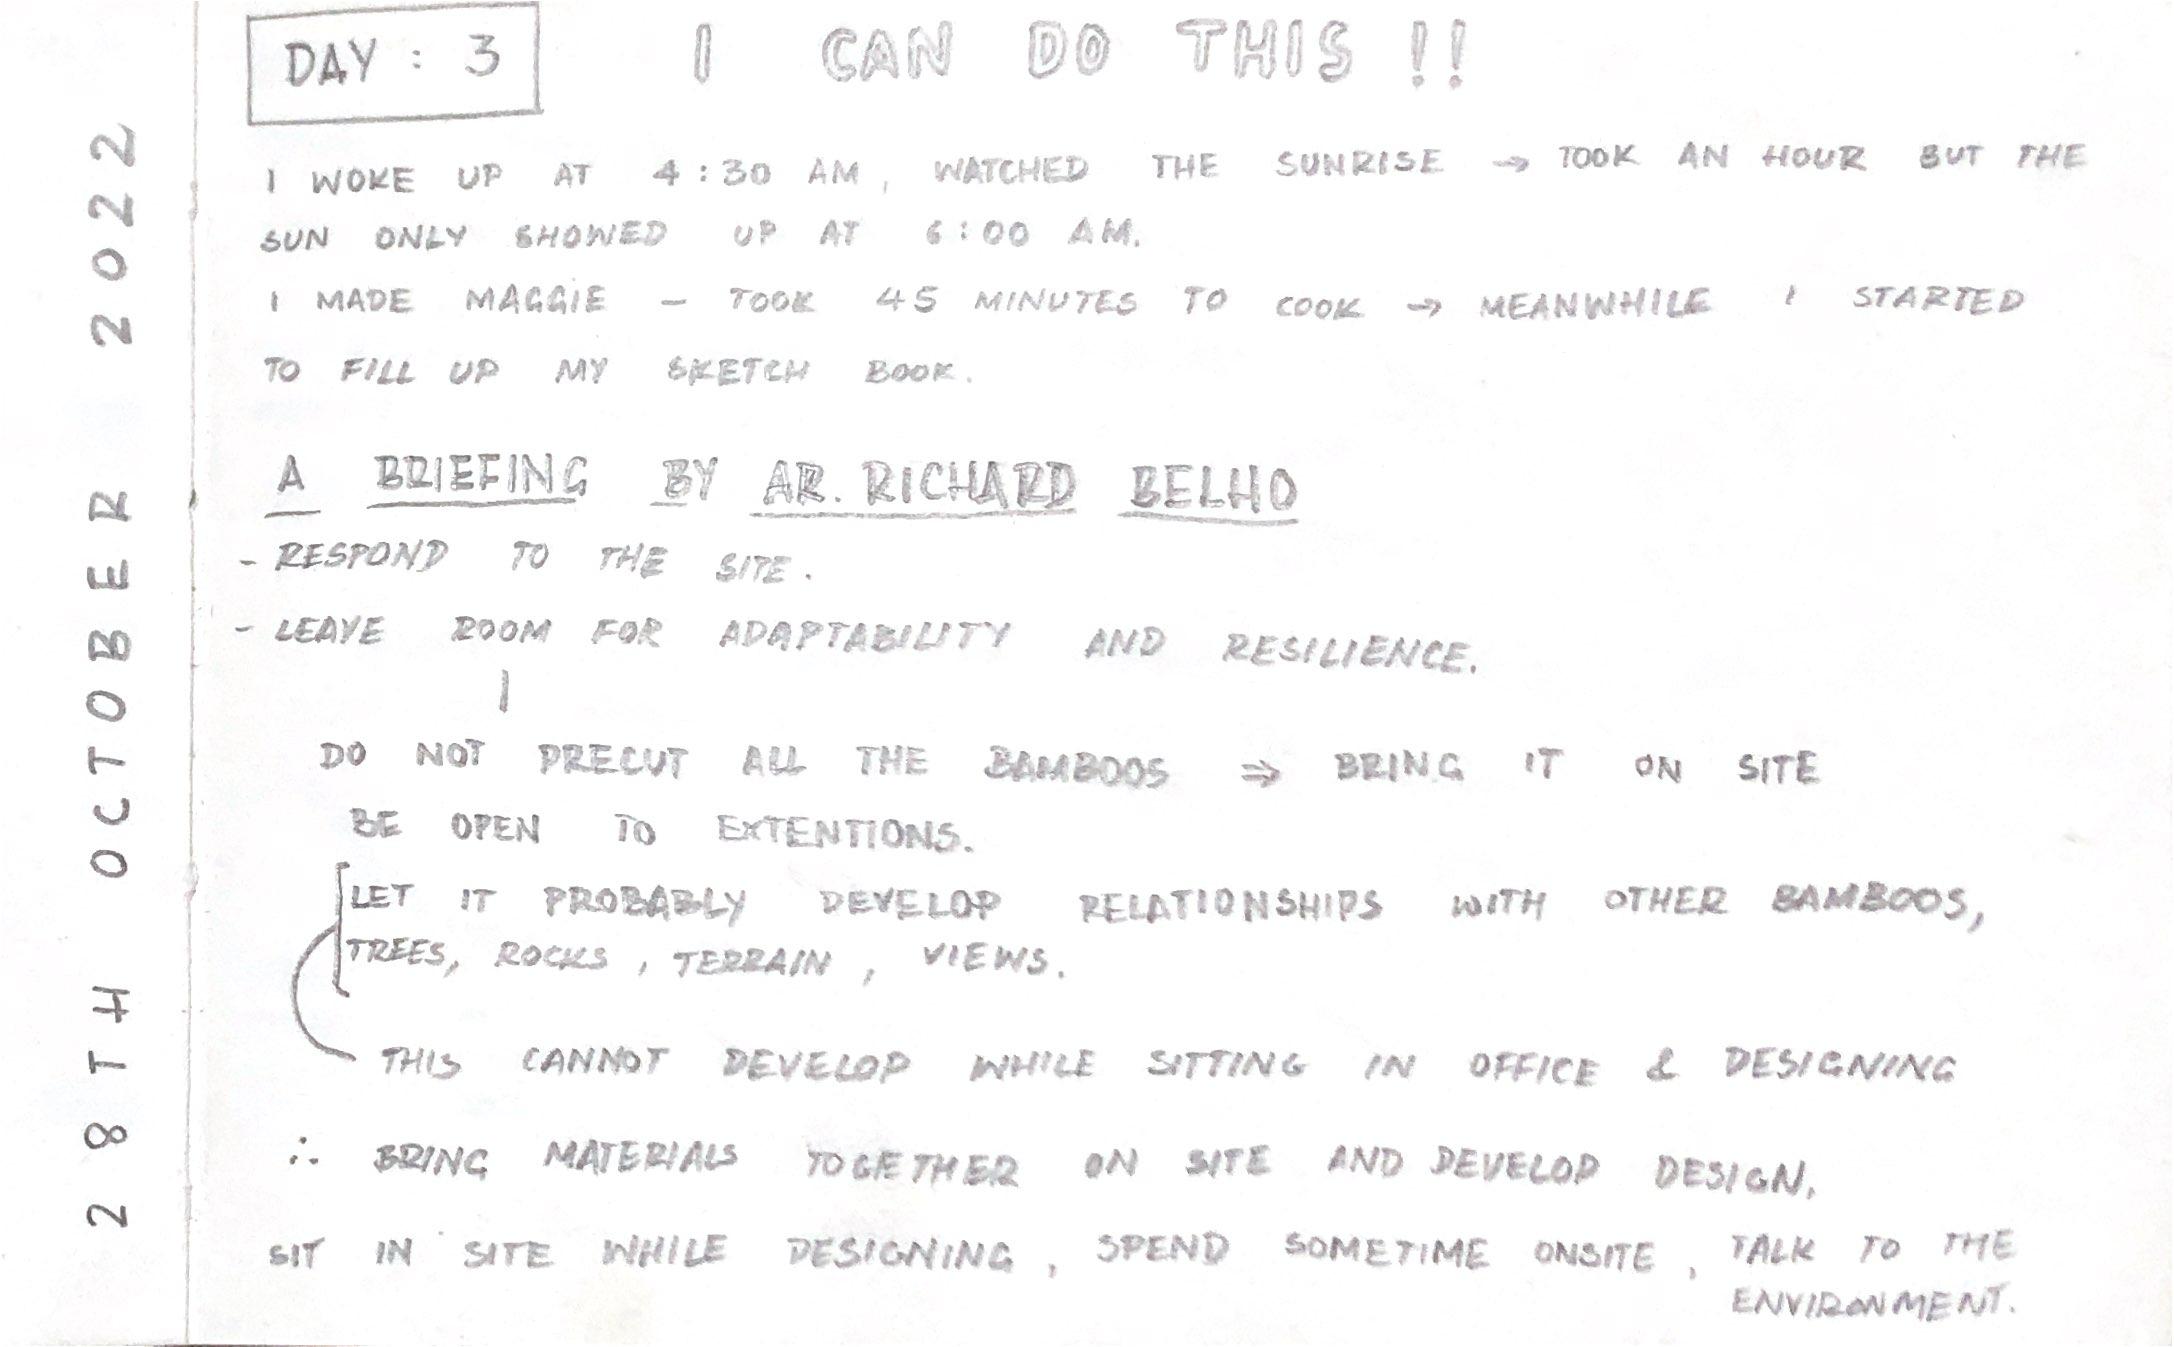 28TH OCTOBER 2022
DAY : 3 I CAN DO THIS !!
I WOKE UP AT 4:30 AM, WATCHED THE SUNRISE → TOOK AN HOUR BUT THE
SUN ONLY SHOWED UP AT 6:00 AM.
I MADE MAGGiE - TOOK 45 MINUTES TO COOK → MEANWHILE I STARTED
TO FILL UP MY SKETCH BOOK.
A BRIEFING BY AR. RICHARD BELHO
- RESPOND TO THE SITE.
- LEAVE ROOM FOR ADAPTABILITY AND RESILIENCE.
DO NOT PRECUT ALL THE BAMBOOS ⇒ BRING IT ON SITE
BE OPEN TO EXTENTIONS.
LET IT PROBABLY DEVELOP RELATIONSHIPS WITH OTHER BAMBOOS,
TREES, ROCKS, TERRAIN, VIEWS.
THIS CANNOT DEVELOP WHILE SITTING IN OFFICE & DESIGNING
∴ BRING MATERIALS TOGETHER ON SITE AND DEVELOP DESIGN.
SIT IN SITE WHILE DESIGNING, SPEND SOMETIME ONSITE, TALK TO THE
ENVIRONMENT.